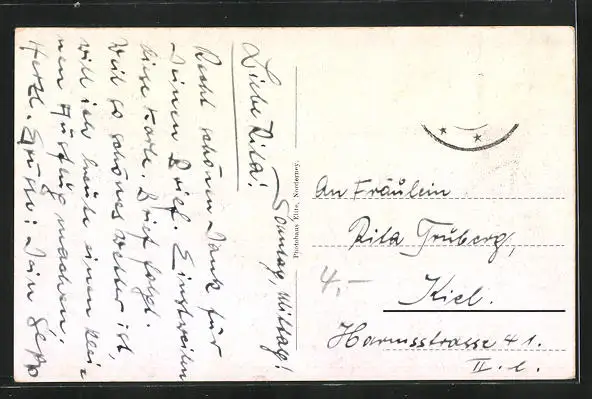 Sonntag, Mittag!
Liebe Rita!
Recht schönen Dank für
Deinen Brief. Einstweilen
diese Karte. Brief folgt.
Weil so schönes Wetter ist,
will ich heute einen klei-
nen Ausflug machen.
Herzl. Grüße! Dein Sepp
Photohaus Norderney.
An Fräulein
Rita Truberg,
4,-
Kiel.
Harmsstrasse 41.
II. l.